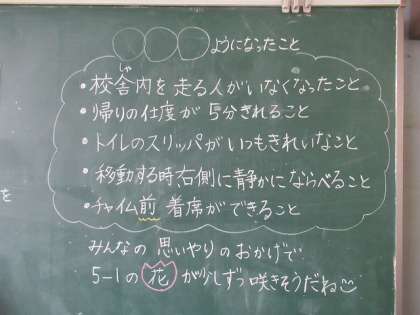 ○○○ようになったこと
・校舎内を走る人がいなくなったこと
しゃ
・帰りの仕度が5分きれること
・トイレのスリッパがいつもきれいなこと
・移動する時、右側に静かにならべること
・チャイム前着席ができること
みんなの思いやりのおかげで
5-1の花が少しずつ咲きそうだね
を